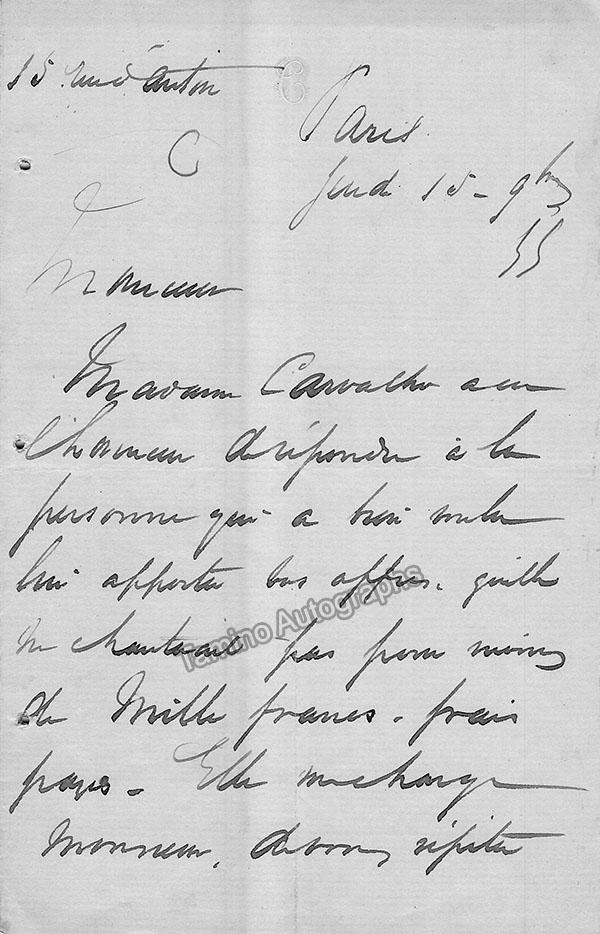 15 rue d'Antin
C
Paris
Jeudi 15 - 9bre
55
Monsieur
Madame Carvalho a eu
l'honneur de répondre à la
personne qui a bien voulu
lui apporter vos offres. qu'elle
ne chanterait pas pour moins
de Mille francs - frais
payés - Elle me charge
Monsieur, de vous répéter
Tamino Autographs